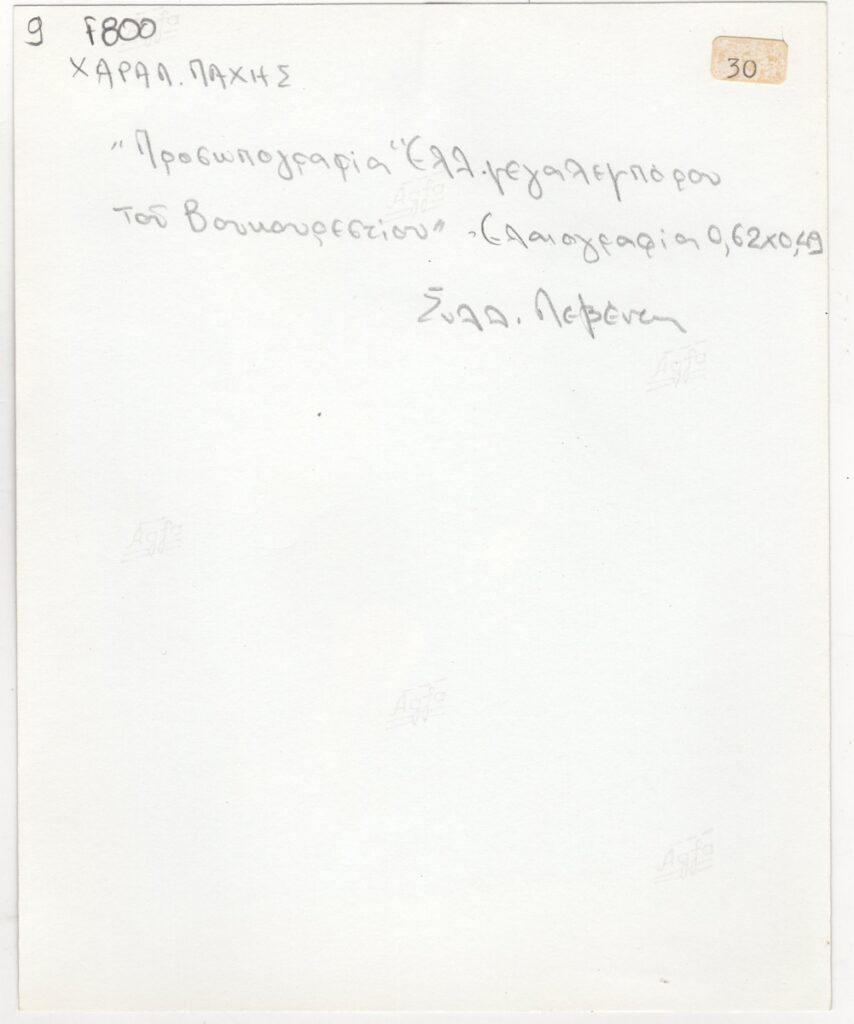 9 F800
30
ΧΑΡΑΛ. ΠΑΧΗΣ
"Προσωπογραφία Ἑλλ. μεγαλεμπόρου
τοῦ Βουκουρεστίου" - Ἐλαιογραφία 0,62x0,49
Συλλ. Λεβέντη
Agfa
Agfa
Agfa
Agfa
Agfa
Agfa